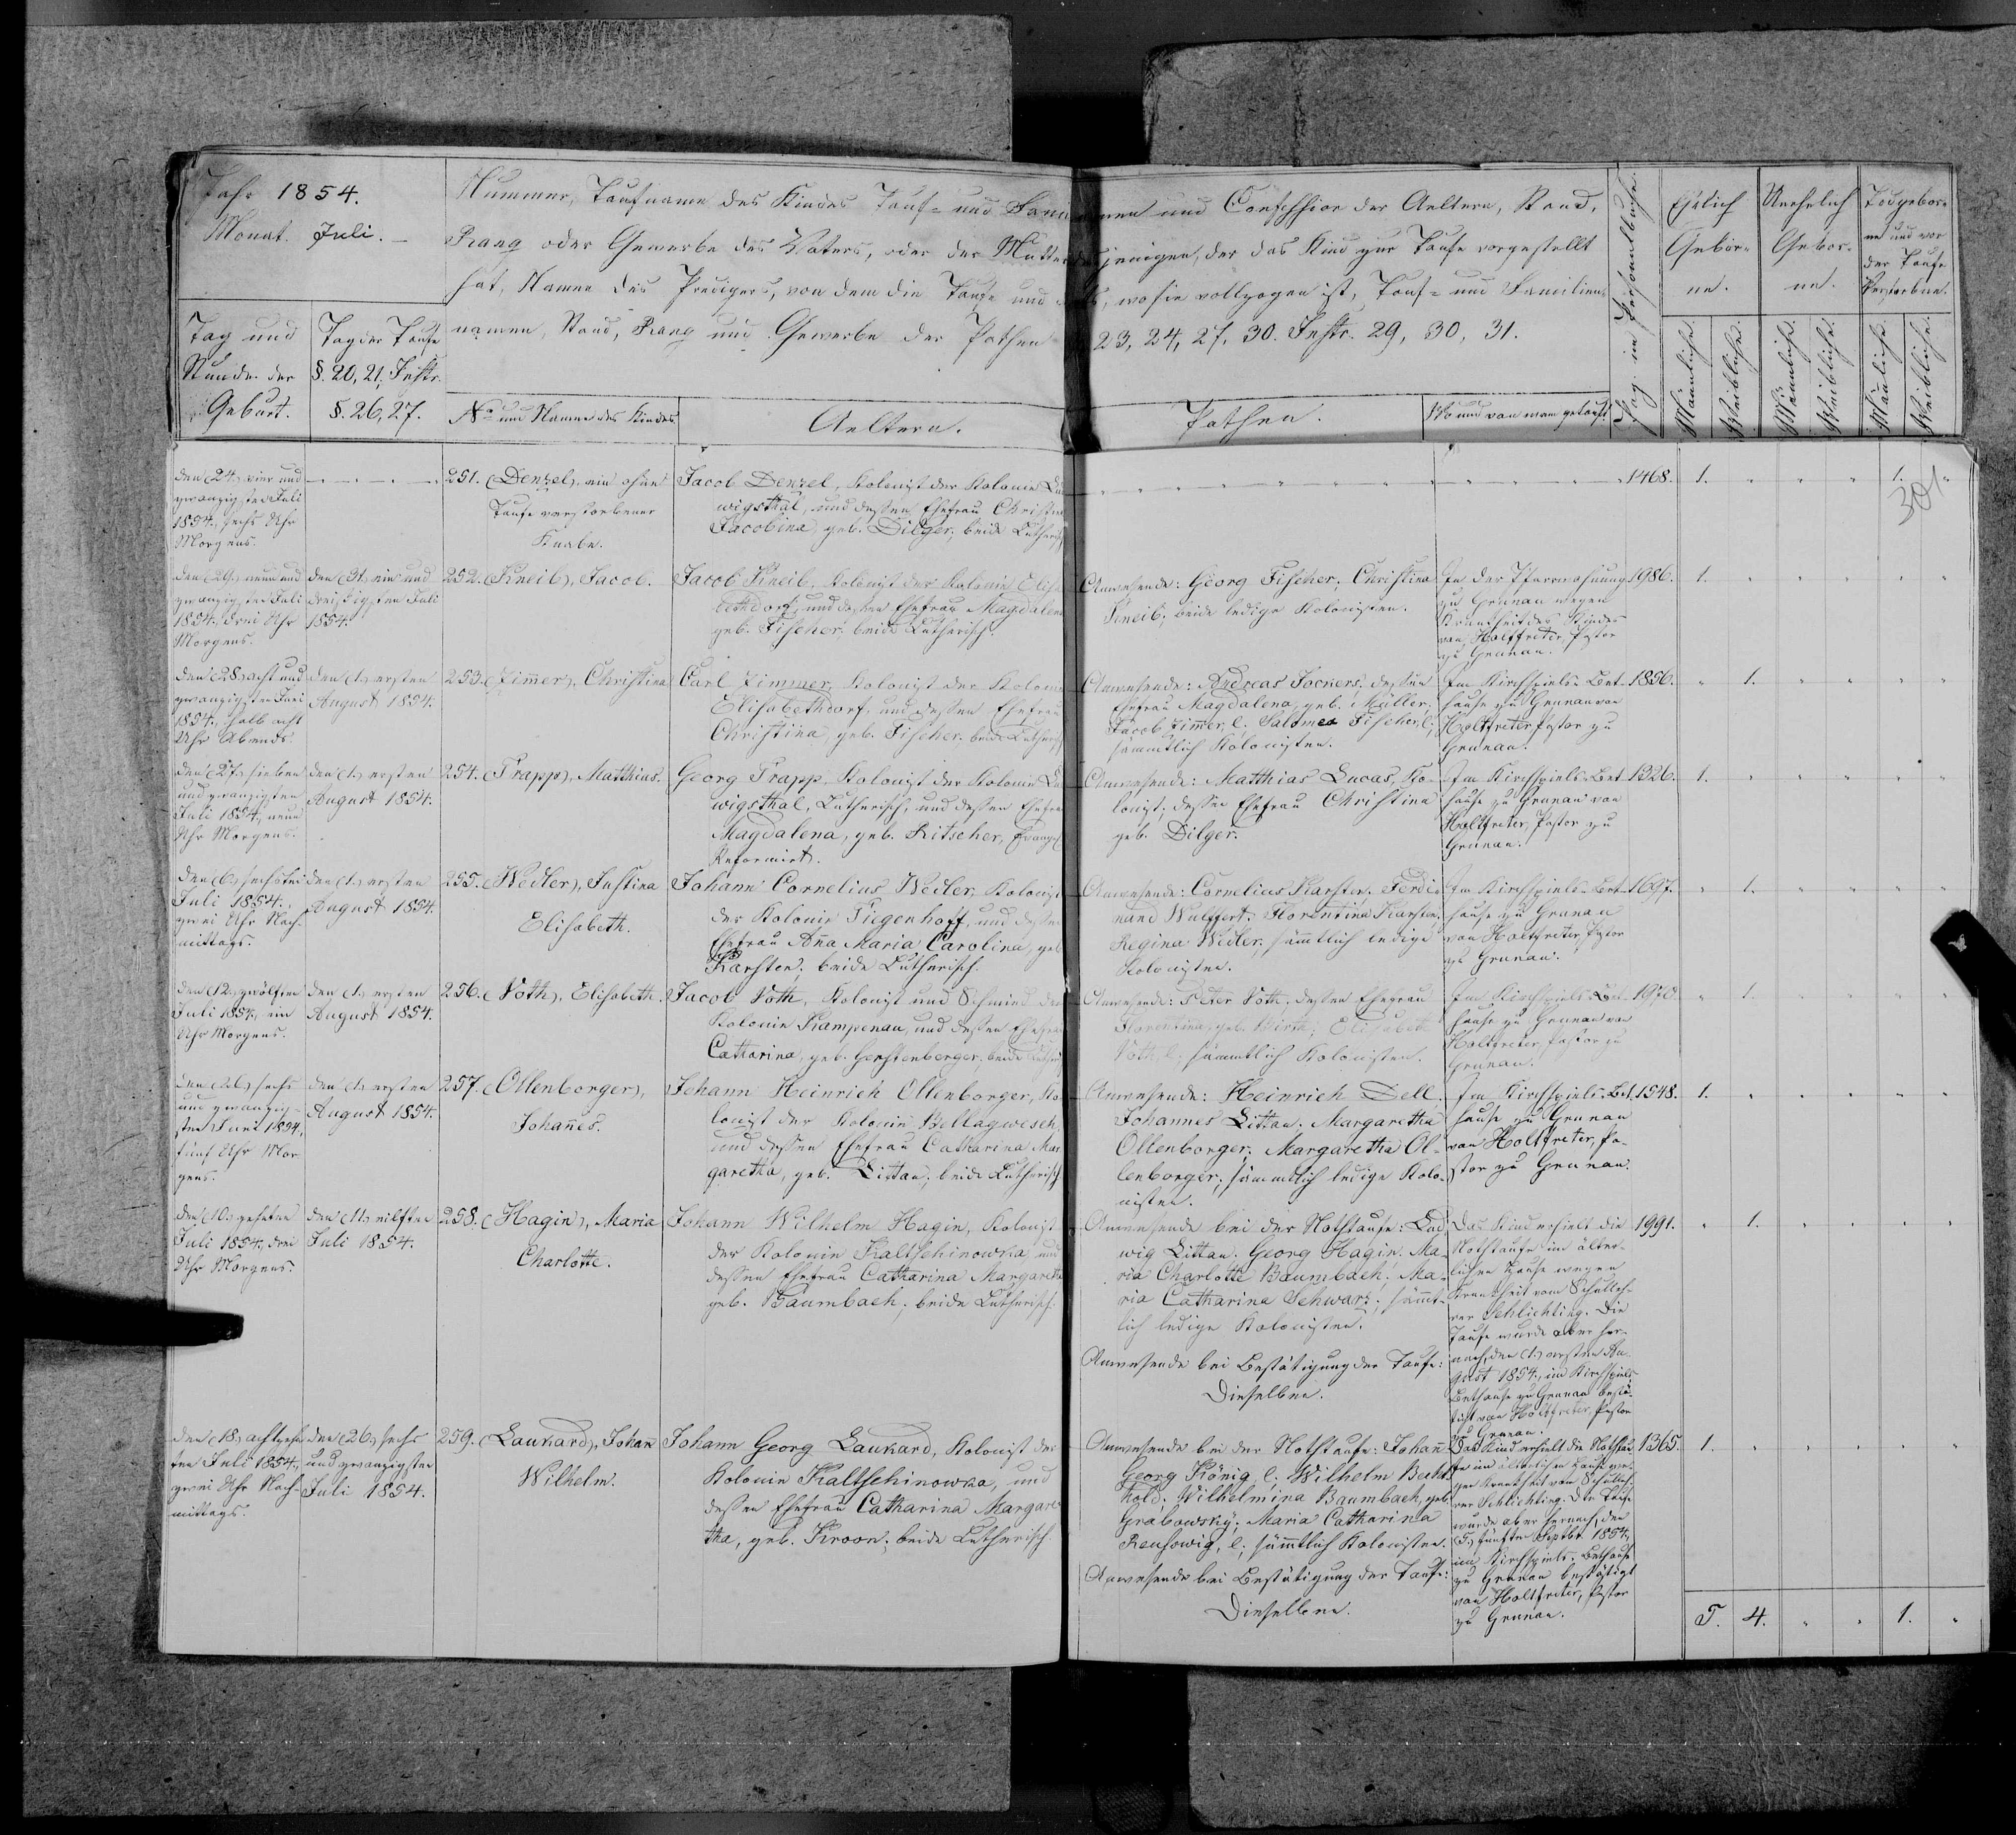 Jahr 1854.
Monat. Juli. —
Tag und
Stunde der
Geburt.
Tag der Taufe
§. 20, 21, Instr.
§. 26, 27.
Nummer, Taufname des Kindes Tauf- und Famil
Rang oder Gewerbe des Vaters, oder der Mutter
hat, Namen des Predigers, von dem die Taufe und
namen, Stand, Rang und Gewerbe der Pathen
No und Name des Kindes.
Aeltern.
namen und Confession der Aeltern, Stand,
desjenigen, der das Kind zur Taufe vorgestellt
wo sie vollzogen ist, Tauf- und Familien-
23, 24, 27, 30. Instr. 29, 30, 31.
Pathen.
Wo und von wem getauft.
Pag. im Personalbuche.
Ehelich
Gebor-
ne.
Unehelich
Gebor-
ne.
Todgebor-
ne und vor
der Taufe
Verstorbene.
Männliche.
Weibliche.
Männliche.
Weibliche.
Männliche.
Weibliche.
den (24.) vier und
zwanzigsten Juli
1854., sechs Uhr
Morgens.
251. (Denzel), ein ohne
Taufe verstorbener
Knabe.
Jacob Denzel, Kolonist der Kolonie Lud
wigsthal, und dessen Ehefrau Christina
Jacobina, geb. Dilger; beide Lutherisch
1468. 1. 1.
301.
den (29.) neun und
zwanzigsten Juli
1854., drei Uhr
Morgens.
den (31.) ein und
dreißigsten Juli
1854.
252. (Kneib), Jacob.
Jacob Kneib, Kolonist der Kolonie Elisa
bethdorf, und dessen Ehefrau Magdalena
geb. Fischer; beide Lutherisch.
Anwesende: Georg Fischer; Christina
Kneib; beide ledige Kolonisten.
In der Pfarrwohnung
zu Grunau wegen
Krankheit des Kindes
von Holtfreter, Pastor
zu Grunau.
1986. 1.
den (28.) acht und
zwanzigsten Juni
1854., halb acht
Uhr Abends.
den (1.) ersten
August 1854.
253. (Zimmer), Christina
Carl Zimmer, Kolonist der Kolonie
Elisabethdorf, und dessen Ehefrau
Christina, geb. Fischer; beide Lutherisch
Anwesende: Andreas Jockers, dessen
Ehefrau Magdalena, geb. Müller;
Jacob Zimmer, l; Salomea Fischer, l;
sämmtlich Kolonisten.
Im Kirchspiels-Bet-
hause zu Grunau von
Holtfreter, Pastor zu
Grunau.
1856. 1.
den (27.) sieben
und zwanzigsten
Juli 1854., neun
Uhr Morgens.
den (1.) ersten
August 1854.
254. (Trapp), Matthias.
Georg Trapp, Kolonist der Kolonie Lud
wigsthal, Lutherisch, und dessen Ehefrau
Magdalena, geb. Ritscher, Evangel
Reformirt.
Anwesende: Matthias Lucas, Ko-
lonist; dessen Ehefrau Christina
geb. Dilger.
Im Kirchspiels-Bet-
hause zu Grunau von
Holtfreter, Pastor zu
Grunau.
1326. 1.
den (6.) sechsten
Juli 1854.,
zwei Uhr Nach-
mittags.
den (1.) ersten
August 1854.
255. (Wedler), Justina
Elisabeth.
Johann Cornelius Wedler, Kolonist
der Kolonie Tiegenhoff, und dessen
Ehefrau Anna Maria Carolina, geb
Karsten; beide Lutherisch.
Anwesende: Cornelius Karsten; Ferdi-
nand Wulffert; Florentina Karsten;
Regina Wedler; sämmtlich ledige
Kolonisten.
Im Kirchspiels-Bet-
hause zu Grunau
von Holtfreter, Pastor
zu Grunau.
1697. 1.
den (12.) zwölften
Juli 1854., ein
Uhr Morgens.
den (1.) ersten
August 1854.
256. (Voth), Elisabeth.
Jacob Voth, Kolonist und Schmied der
Kolonie Kampenau, und dessen Ehefrau
Catharina, geb. Gerstenberger; beide Lutherisch
Anwesende: Peter Voth, dessen Ehefrau
Florentina, geb. Wirth; Elisabeth
Voth, l; sämmtlich Kolonisten.
Im Kirchspiels-Bet-
hause zu Grunau von
Holtfreter, Pastor zu
Grunau.
1970. 1.
den (26.) sechs
und zwanzig-
sten Juni 1854.,
fünf Uhr Mor-
gens.
den (1.) ersten
August 1854.
257. (Ollenborger),
Johannes.
Johann Heinrich Ollenborger, Ko-
lonist der Kolonie Bellagwesch,
und dessen Ehefrau Catharina Mar
garetha, geb. Littau; beide Lutherisch
Anwesende: Heinrich Dell.
Johannes Littau. Margaretha
Ollenborger; Margaretha Ol-
lenborger; sämmtlich ledige Kolo-
nisten.
Im Kirchspiels-Bet-
hause zu Grunau
von Holtfreter, Pa-
stor zu Grunau.
1548. 1.
den (10.) zehnten
Juli 1854., drei
Uhr Morgens.
den (11.) eilften
Juli 1854.
258. (Hagin), Maria
Charlotte.
Johann Wilhelm Hagin, Kolonist
der Kolonie Kaltschinowka und
dessen Ehefrau Catharina Margaretha
geb. Baumbach; beide Lutherisch.
Anwesende bei der Nothtaufe: Lud-
wig Littau. Georg Hagin; Ma-
ria Charlotte Baumbach; Ma-
ria Catharina Schwarz; sämmt-
lich ledige Kolonisten.
Anwesende bei Bestätigung der Taufe:
Dieselben.
Das Kind erhielt die
Nothtaufe im älter-
lichen Hause wegen
Krankheit vom Schulleh-
rer Schlichting. Die
Taufe wurde aber her-
nach, den (1.) ersten Au-
gust 1854., im Kirchspiels-
Bethause zu Grunau bestä-
tigt von Holtfreter, Pastor
zu Grunau.
1991. 1.
den (18.) achtzehn-
ten Juli 1854.,
zwei Uhr Nach-
mittags.
den (26.) sechs
und zwanzigsten
Juli 1854.
259. (Laukard), Johann
Wilhelm.
Johann Georg Laukard, Kolonist der
Kolonie Kaltschinowka, und
dessen Ehefrau Catharina Margare-
tha, geb. Kroon; beide Lutherisch.
Anwesende bei der Nothtaufe: Johann
Georg König, l; Wilhelm Becht-
hold; Wilhelmina Baumbach, geb.
Grabowsky; Maria Catharina
Rensowig, l; sämmtlich Kolonisten.
Anwesende bei Bestätigung der Taufe:
Dieselben.
Das Kind erhielt die Nothtau-
fe im älterlichen Hause we-
gen Krankheit vom Schulleh-
rer Schlichting. Die Taufe
wurde aber hernach, den
(5.) fünften Septbr 1854.,
im Kirchspiels-Bethause
zu Grunau bestätigt
von Holtfreter, Pastor
zu Grunau.
1365. 1.
5. 4. 1.